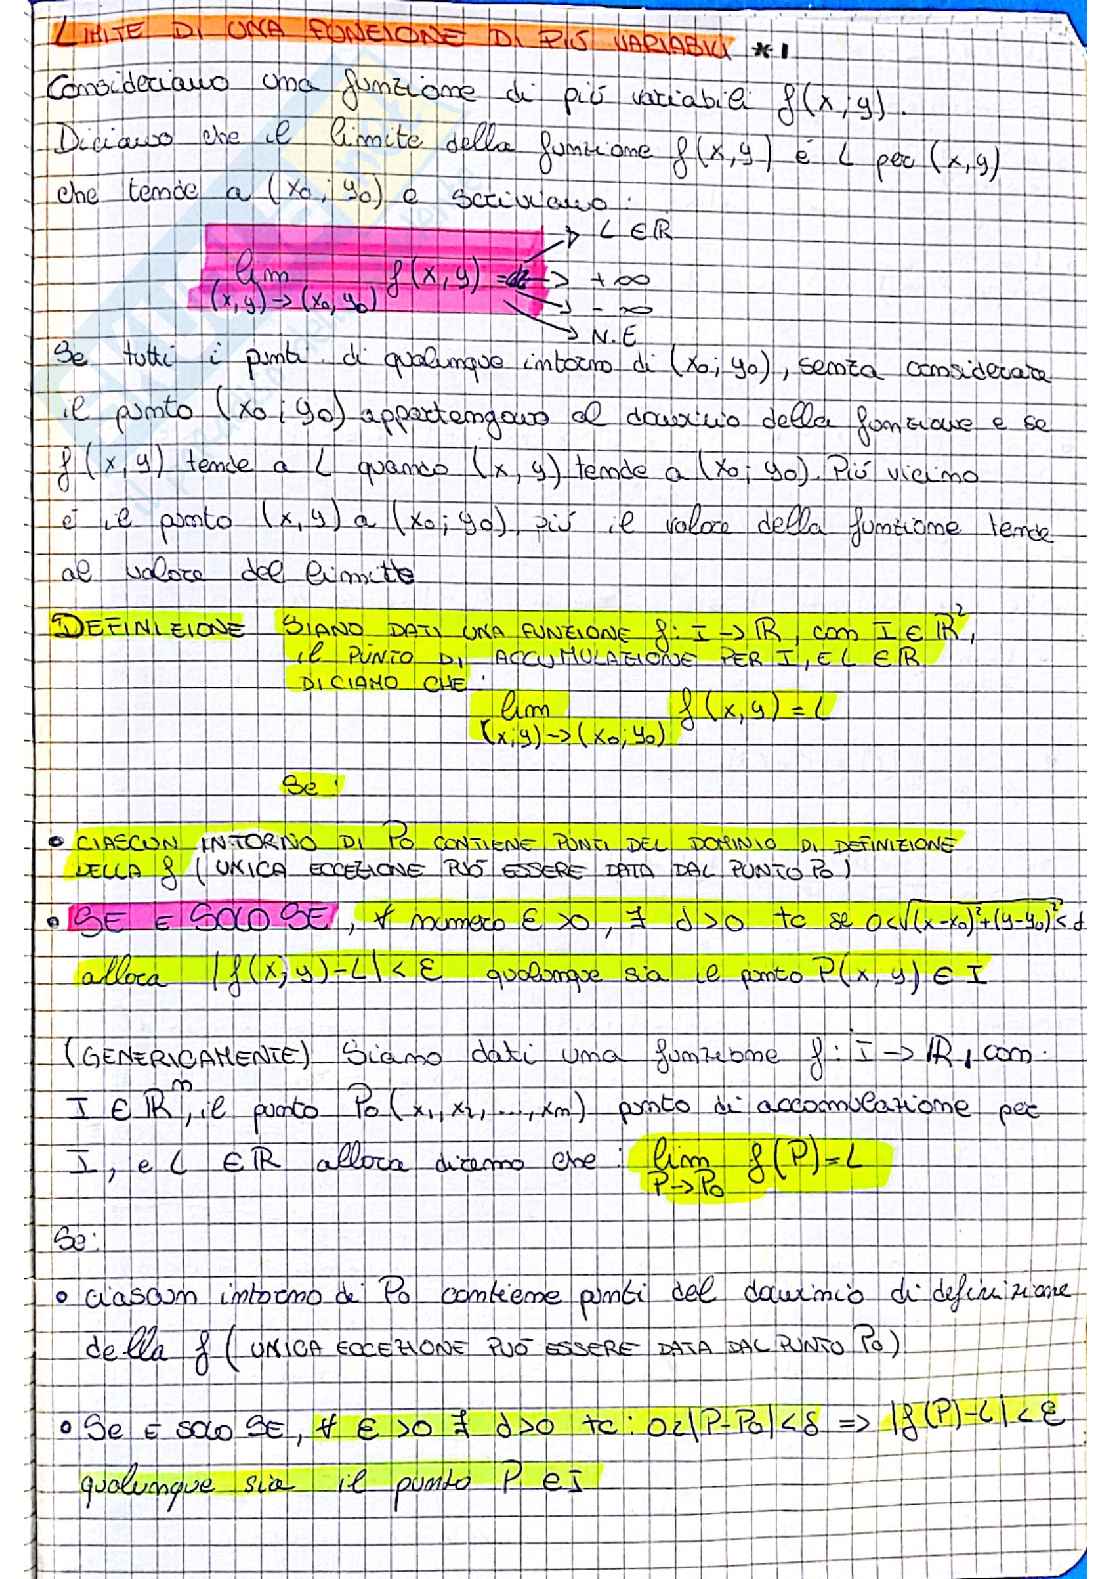 LIMITE DI UNA FUNZIONE DI PIÙ VARIABILI *1
Consideriamo una funzione di più variabili f(x,y).
Diciamo che il limite della funzione f(x,y) è L per (x,y)
che tende a (x₀; y₀) e scriviamo:
→ L ∈ ℝ
lim f(x,y) = → +∞
(x,y)→(x₀,y₀) → -∞
→ N.E
Se tutti i punti di qualunque intorno di (x₀; y₀), senza considerare
il punto (x₀; y₀) appartengono al dominio della funzione e se
f(x,y) tende a L quando (x,y) tende a (x₀; y₀). Più vicino
è il punto (x,y) a (x₀; y₀), più il valore della funzione tende
al valore del limite
DEFINIZIONE SIANO DATI UNA FUNZIONE f: I → ℝ, con I ∈ ℝ²,
il PUNTO DI ACCUMULAZIONE PER I, E L ∈ ℝ
DICIAMO CHE:
lim f(x,y) = L
(x;y)→(x₀;y₀)
Se:
• CIASCUN INTORNO DI P₀ CONTIENE PUNTI DEL DOMINIO DI DEFINIZIONE
DELLA f (UNICA ECCEZIONE PUÒ ESSERE DATA DAL PUNTO P₀)
• SE E SOLO SE, ∀ numero ε>0, ∃ d>0 tc se 0<√(x-x₀)²+(y-y₀)²<d
allora |f(x;y)-L|<ε qualunque sia il punto P(x,y) ∈ I
(GENERICAMENTE) Siano dati una funzione f: I → ℝ, con
I ∈ ℝⁿ, il punto P₀(x₁,x₂,...,xn) punto di accumulazione per
I, e L ∈ ℝ allora diremo che: lim f(P)=L
P→P₀
Se:
• ciascun intorno di P₀ contiene punti del dominio di definizione
della f (UNICA ECCEZIONE PUÒ ESSERE DATA DAL PUNTO P₀)
• Se E SOLO SE, ∀ ε>0 ∃ d>0 tc: 0<|P-P₀|<δ ⇒ |f(P)-L|<ε
qualunque sia il punto P ∈ I